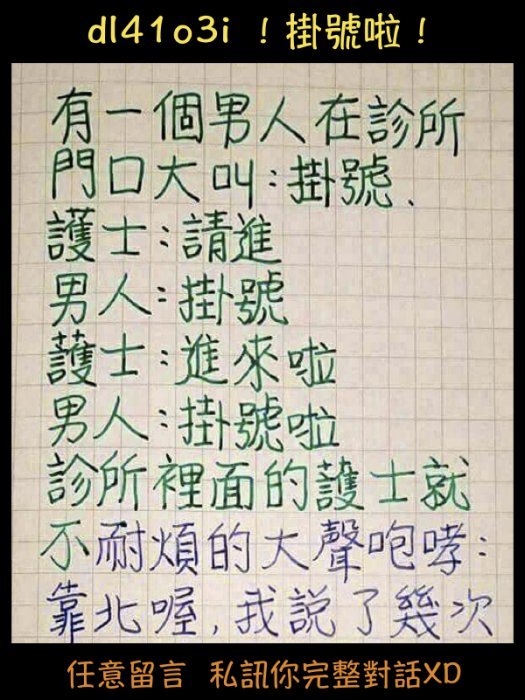 dl41o3i ！掛號啦！
有一個男人在診所
門口大叫：掛號、
護士：請進
男人：掛號
護士：進來啦
男人：掛號啦
診所裡面的護士就
不耐煩的大聲咆哮：
靠北喔，我説了幾次
任意留言 私訊你完整對話XD